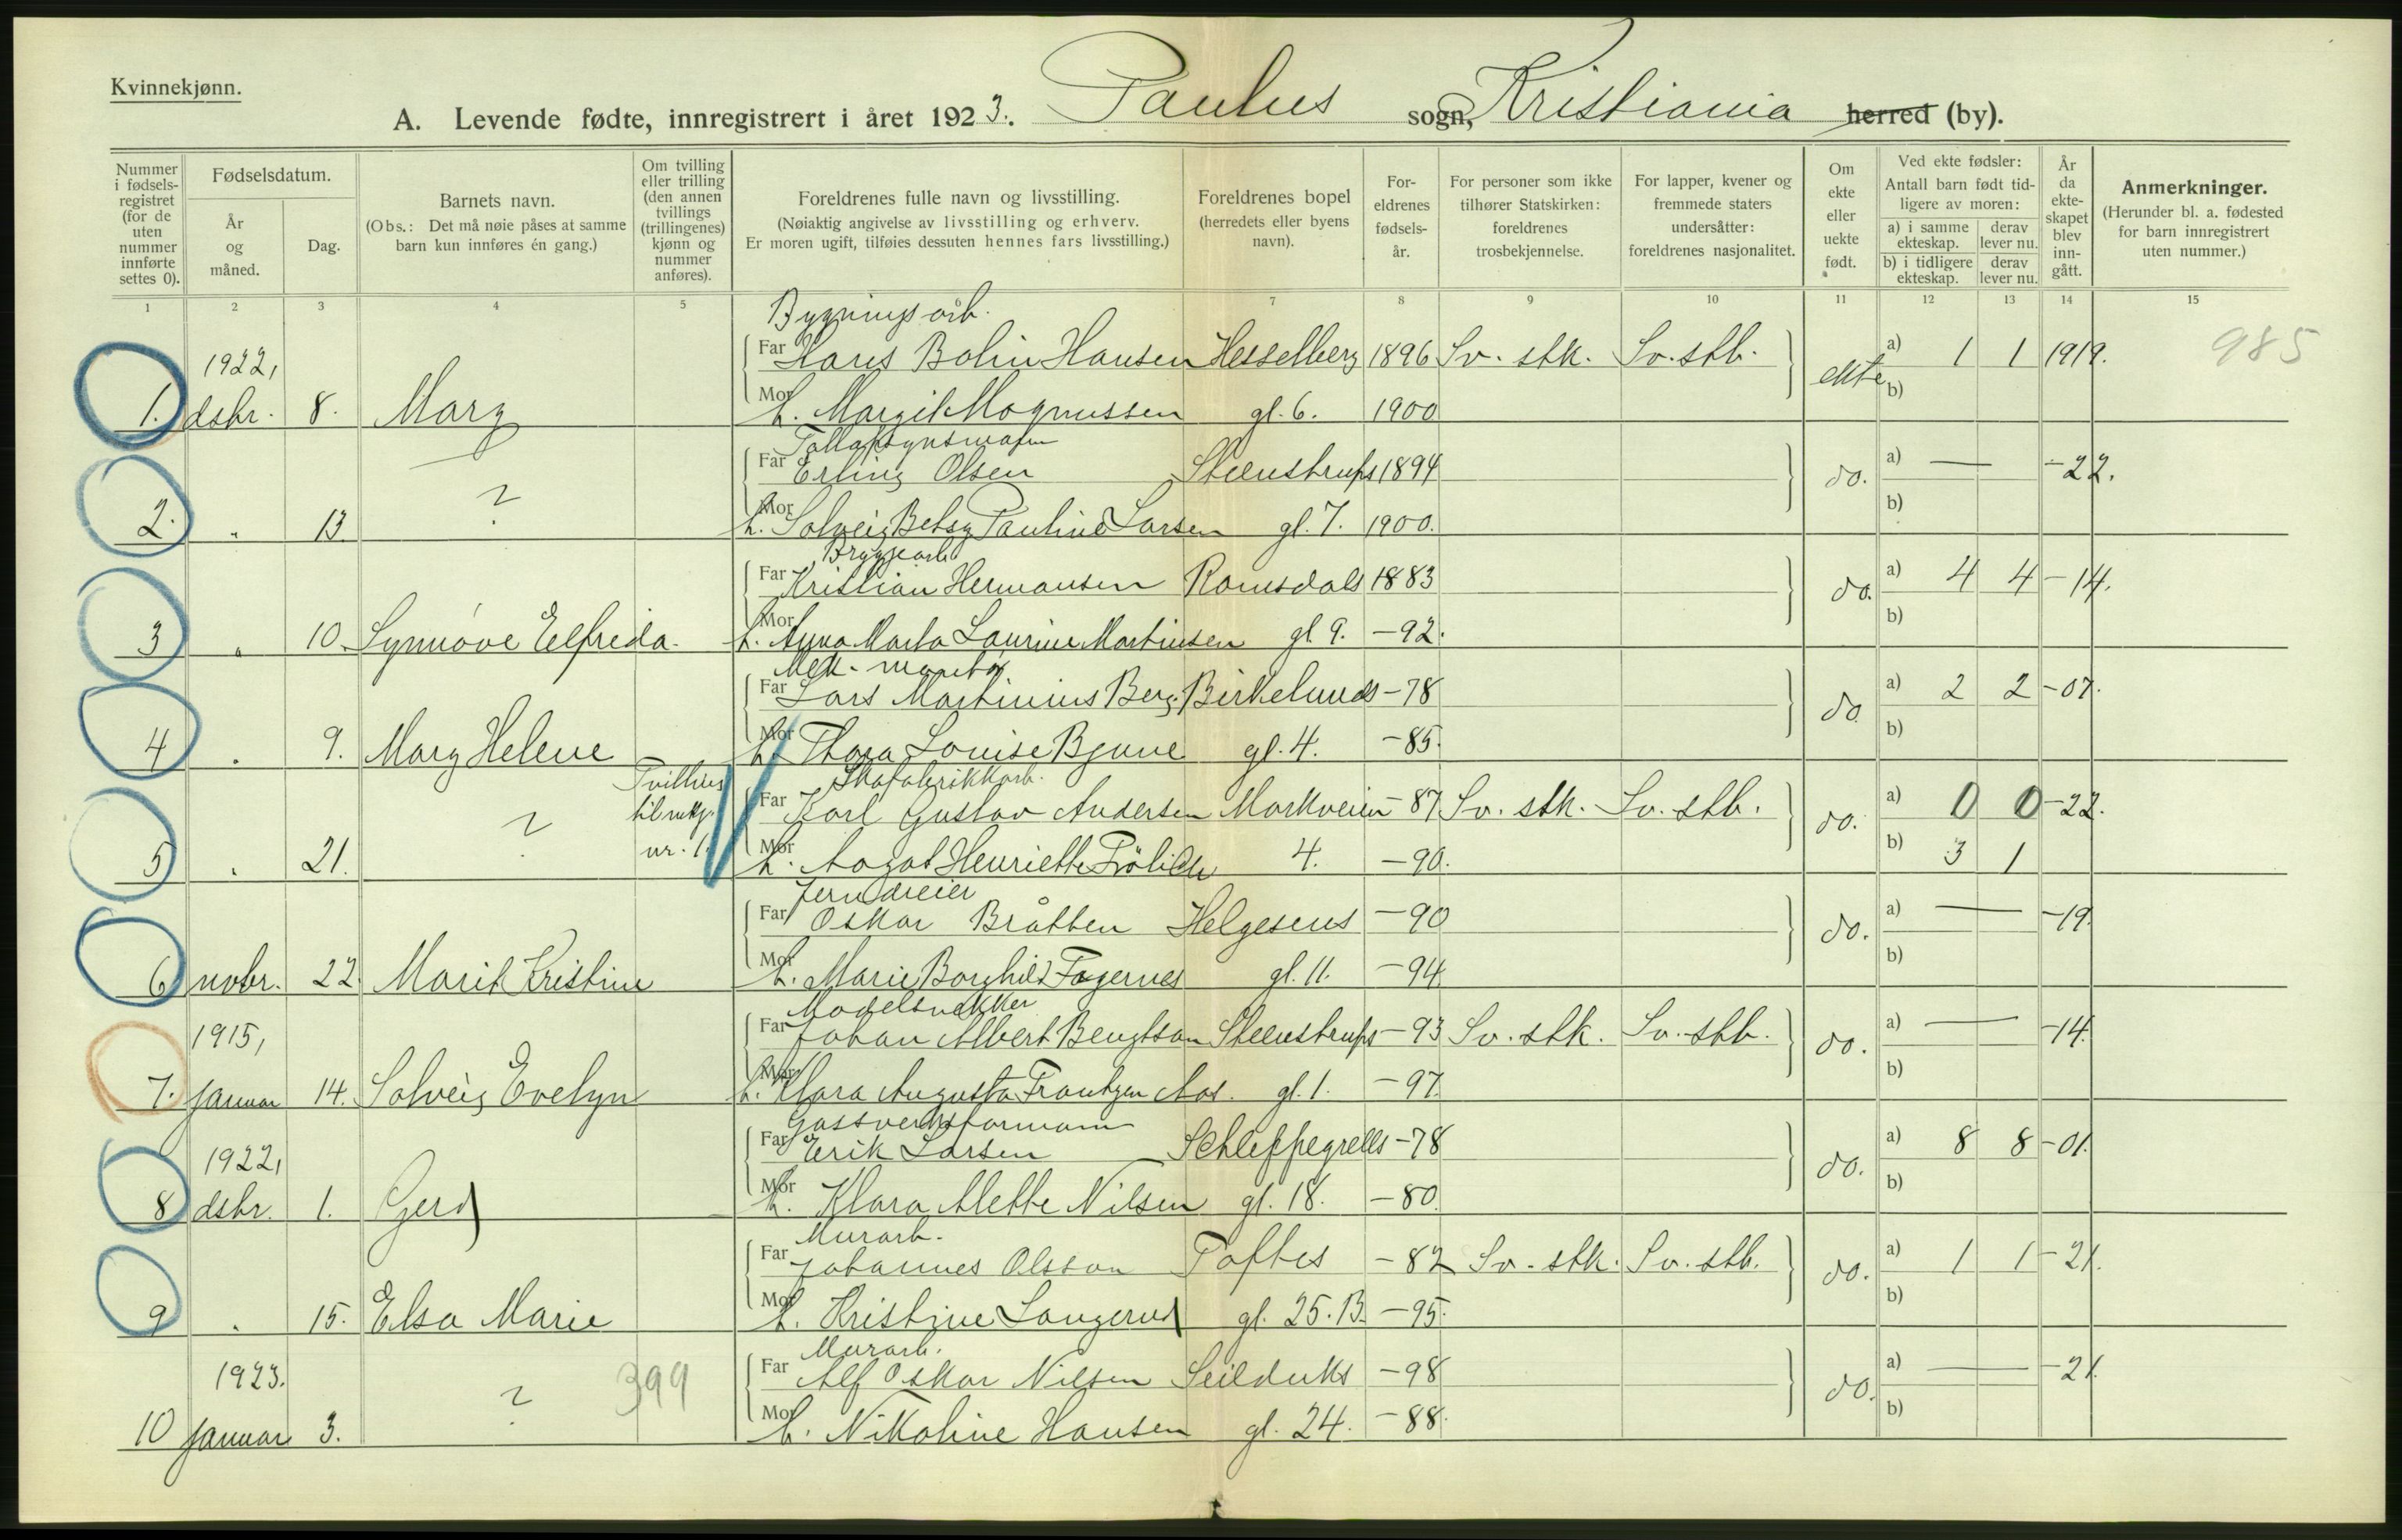 Kvinnekjønn.
A. Levende fødte, innregistrert i året 1923. Paulus sogn, Kristiania herred (by).
Nummer i fødselsregistret (for de uten nummer innførte settes 0).
Fødselsdatum.
År og måned.
Dag.
Barnets navn.
(Obs.: Det må nøie påses at samme barn kun innføres én gang.)
Om tvilling eller trilling (den annen tvillings (trillingenes) kjønn og nummer anføres).
Foreldrenes fulle navn og livsstilling.
(Nøiaktig angivelse av livsstilling og erhverv.
Er moren ugift, tilføies dessuten hennes fars livsstilling.)
Foreldrenes bopel (herredets eller byens navn).
Foreldrenes fødselsår.
For personer som ikke tilhører Statskirken: foreldrenes trosbekjennelse.
For lapper, kvener og fremmede staters undersåtter: foreldrenes nasjonalitet.
Om ekte eller uekte født.
Ved ekte fødsler: Antall barn født tidligere av moren:
a) i samme ekteskap. derav lever nu.
b) i tidligere ekteskap. derav lever nu.
År da ekteskapet blev inngått.
Anmerkninger.
(Herunder bl. a. fødested for barn innregistrert uten nummer.)
1 2 3 4 5 7 8 9 10 11 12 13 14 15
Bygningsarb.
1922, Far Hans Bolin Hansen Hesselberg 1896 Sv. stk. Sv. stb. ekte a) 1 1 1919. 985
1. dsbr. 8. Mary Mor h. Margit Magnussen gl. 6. 1900 b)
Far Erling Olsen Steenstrups 1894 do. a) — -22.
2. " 13. ? Mor h. Solveig Betsy Pauline Larsen gl. 7. 1900. b)
Bryggearb.
Far Kristian Hermansen Romsdals 1883 do. a) 4 4 -14.
3 " 10. Synnøve Elfreda. Mor h. Anna Marta Laurine Martinsen gl. 9. -92. b)
Mek. montør
Far Lars Martinius Berg. Birkelunds -78 do a) 2 2 -07.
4 " 9. Mary Helene Mor h. Thora Louise Bjune gl. 4. -85. b)
Skofabrikkarb.
Tvilling Far Karl Gustav Andersen Markveien -87 Sv. stk. Sv. stb. do. a) 0 0 -22.
5 " 21. ? nr. 1. Mor h. Aagot Henriette Frölich 4. -90. b) 3 1
Jerndreier
Far Oskar Bråtten Helgesens -90 do. a) — -19.
6 novbr. 22. Marit Kristine Mor h. Marie Borghild Fagernes gl. 11. -94. b)
Modelsnekker
1915, Far Johan Albert Bengtson Steenstrups -93 Sv. stk. Sv. stb. do. a) — -14.
7. januar 14. Solveig Evelyn Mor h. Klara Augusta Frantzen Aas. gl. 1. -97. b)
Gassverksformann
1922, Far Erik Larsen Schleppegrells -78 do. a) 8 8 -01.
8 dsbr. 1. Gerd Mor h. Klara Alette Nilsen gl. 18. -80. b)
Murarb.
Far Johannes Olsson Toftes -82 Sv. stk. Sv. stb. do. a) 1 1 -21.
9 " 15. Elsa Marie Mor h. Kristine Langerud gl. 25. B. -95. b)
Murarb.
1923. 399 Far Alf Oskar Nilsen Seilduks -98 do. a) — -21.
10 januar 3. ? Mor h. Nikoline Hansen gl. 24. -88. b)